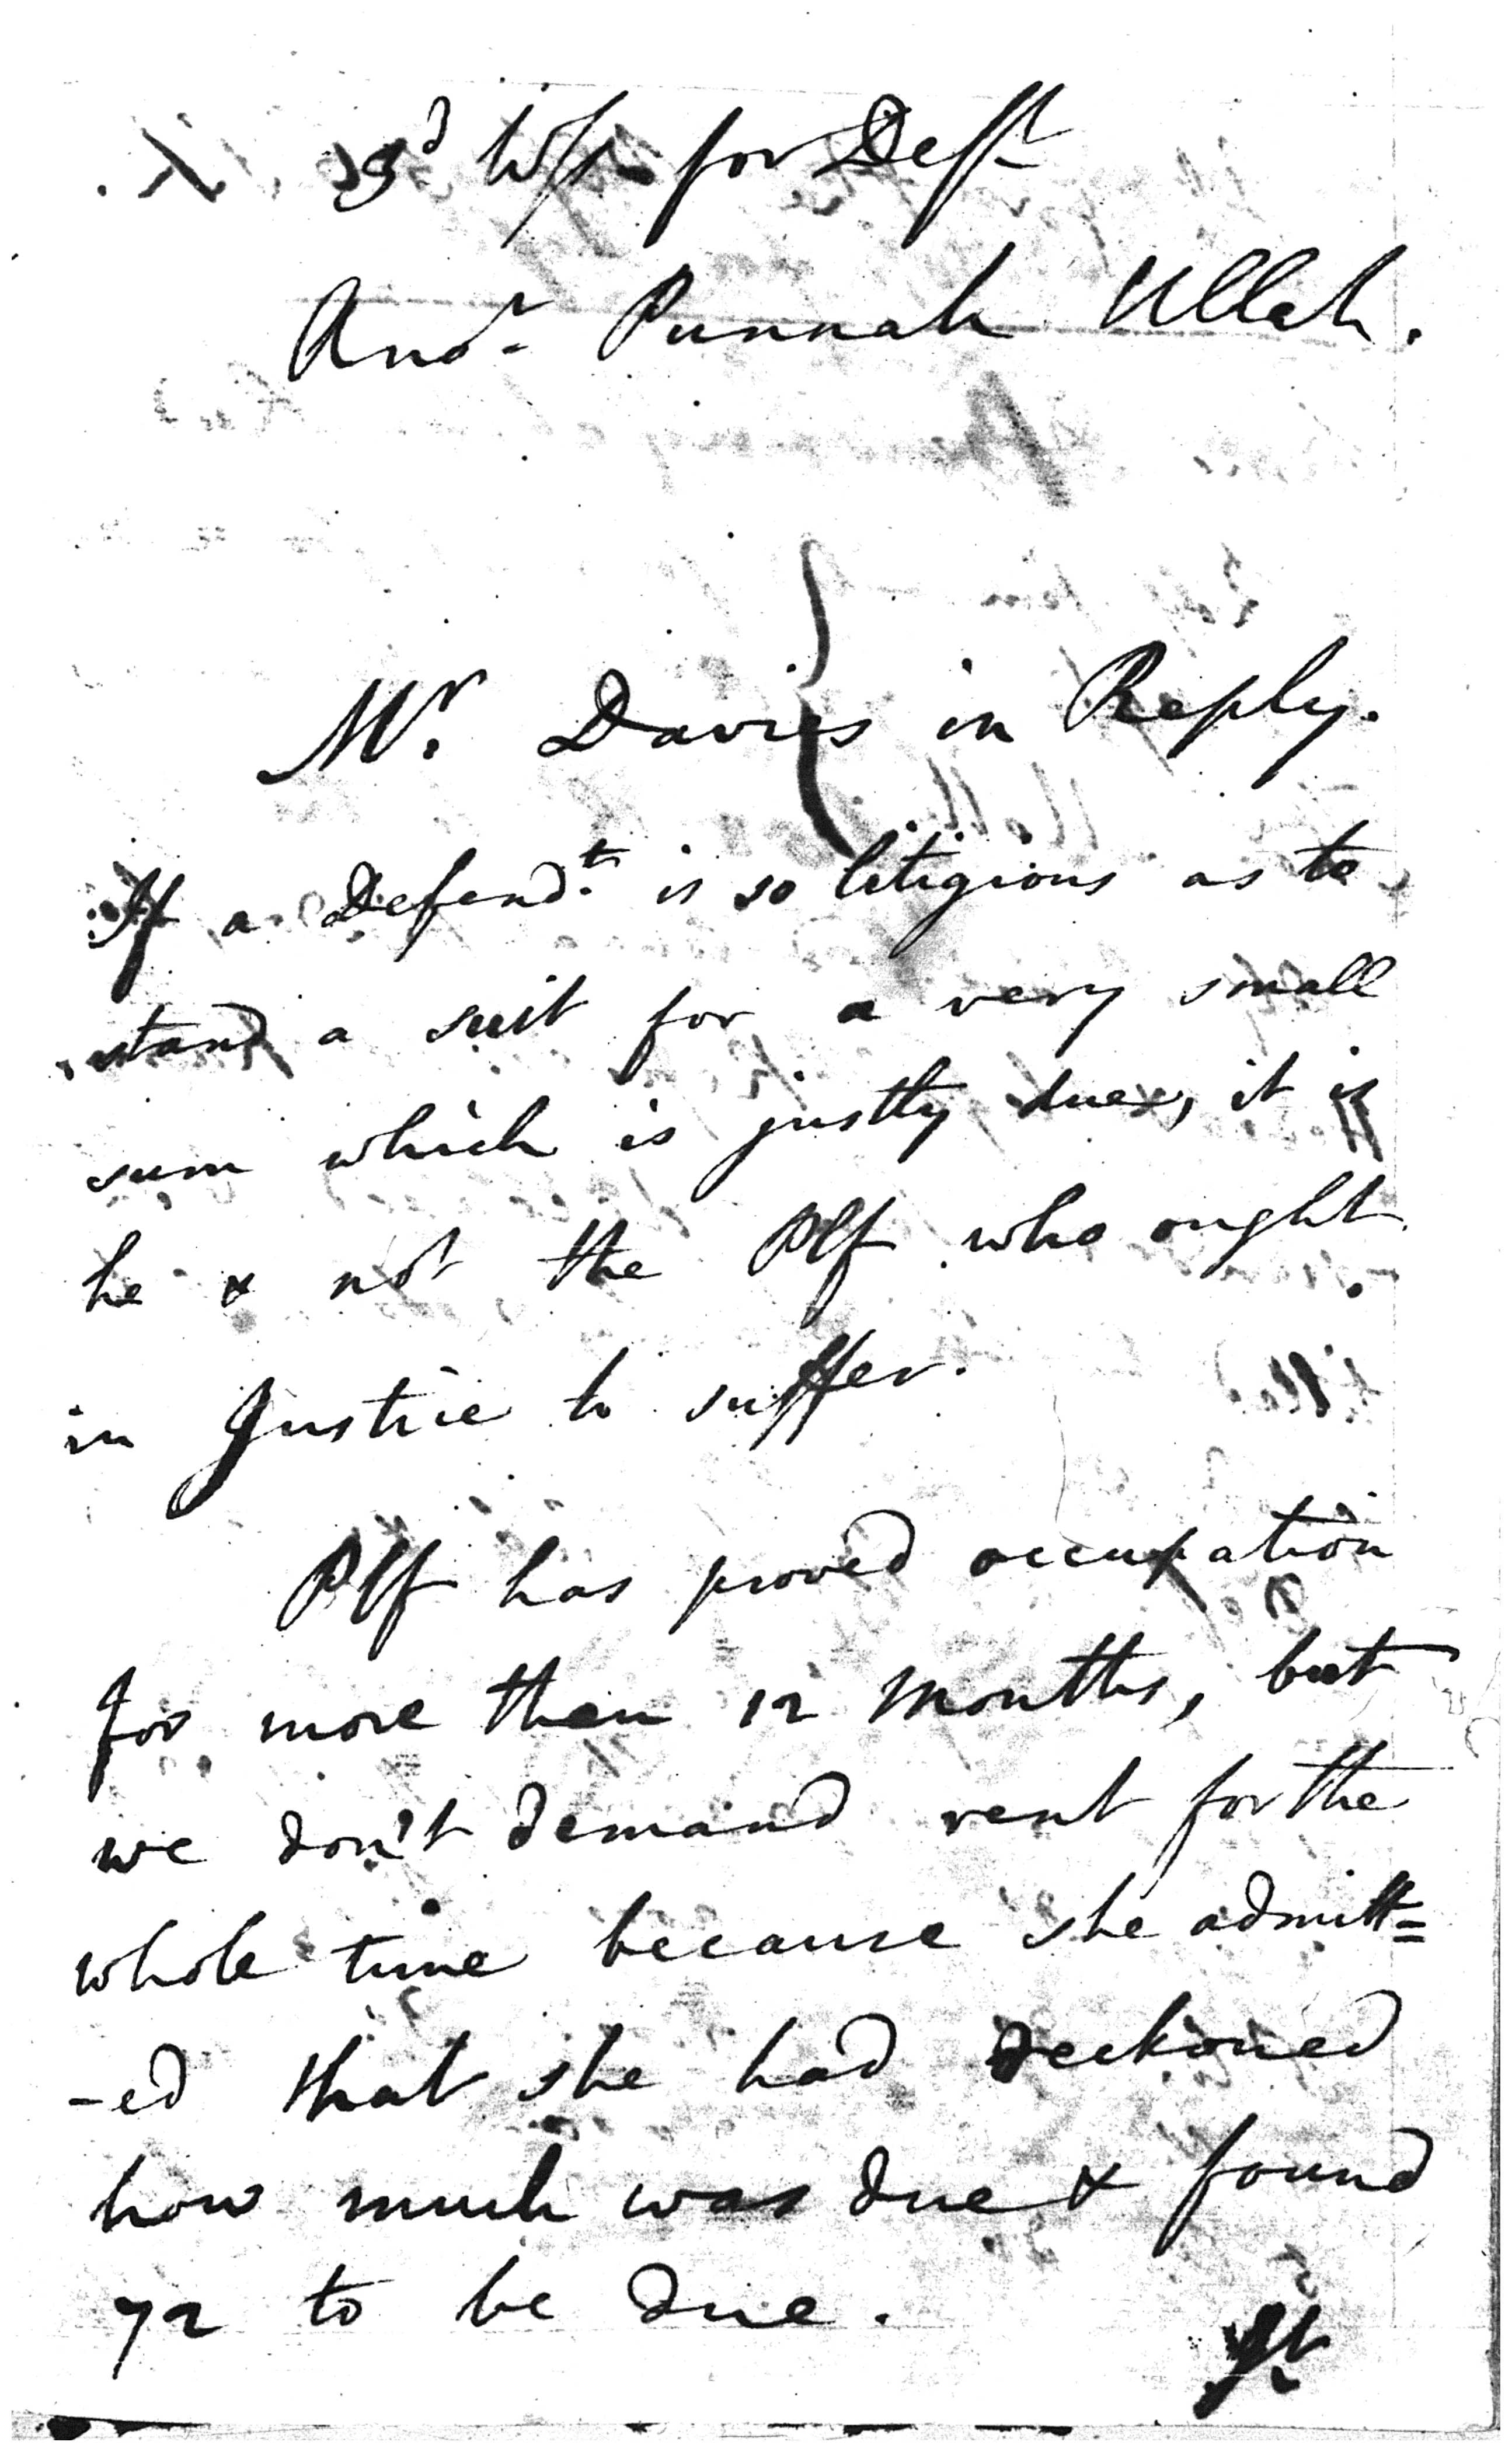 3d W/s for Deft
Anor Punnah Ullah.
Mr. Davies in Reply.
If a Defendt. is so litigious as to
stand a suit for a very small
sum which is justly due, it is
he & not the Plf who ought
in Justice to suffer.
Plf has proved occupation
for more than 12 Months, but
we don't demand rent for the
whole time because she admitt=
-ed that she had reckoned
how much was due & found
72 to be due.
It